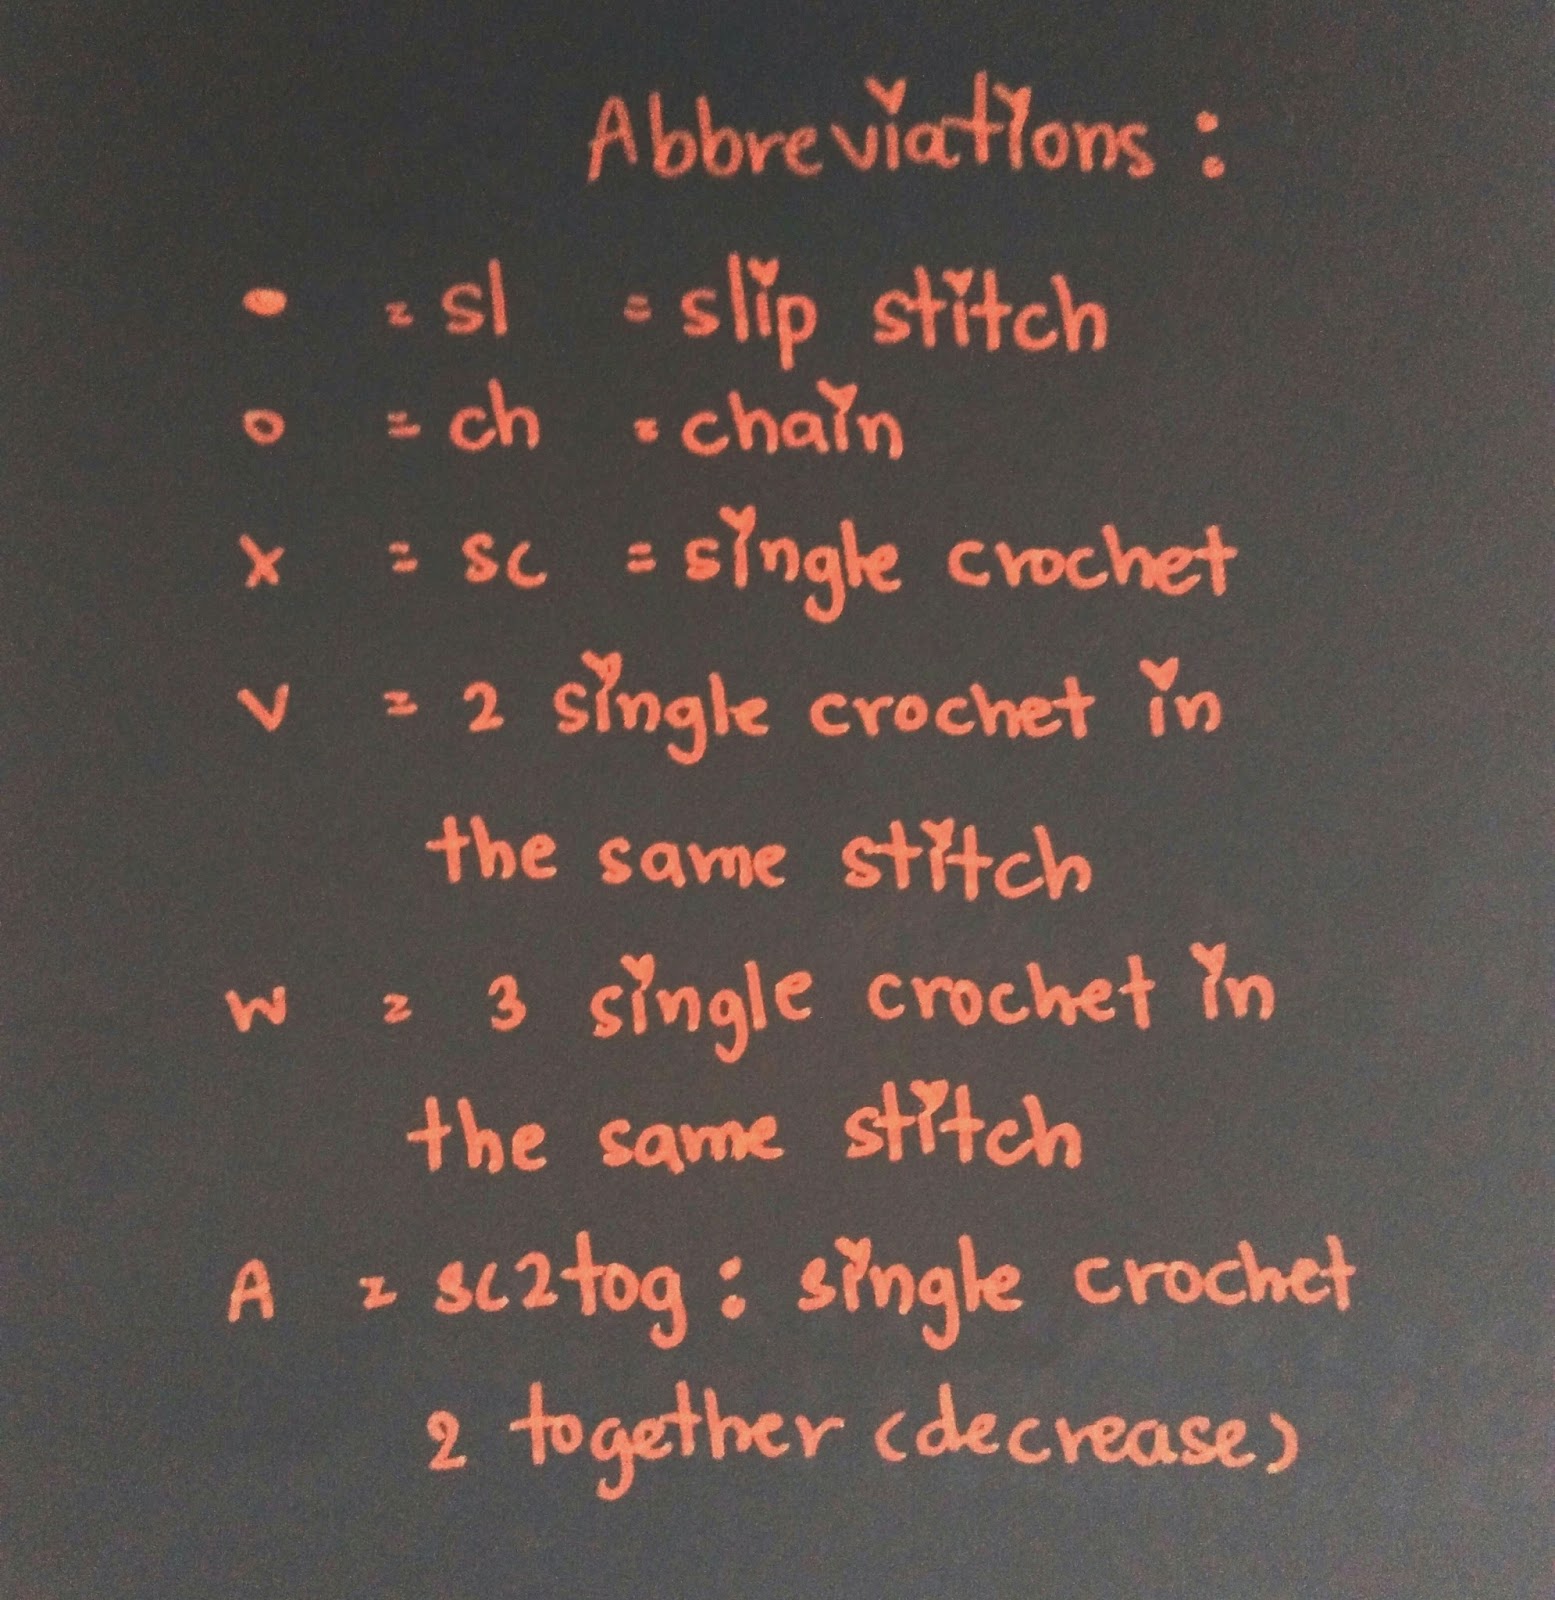 Abbreviations :
• = sl = slip stitch
o = ch = chain
x = sc = single crochet
v = 2 single crochet in
the same stitch
w = 3 single crochet in
the same stitch
A = sc2tog : single crochet
2 together (decrease)